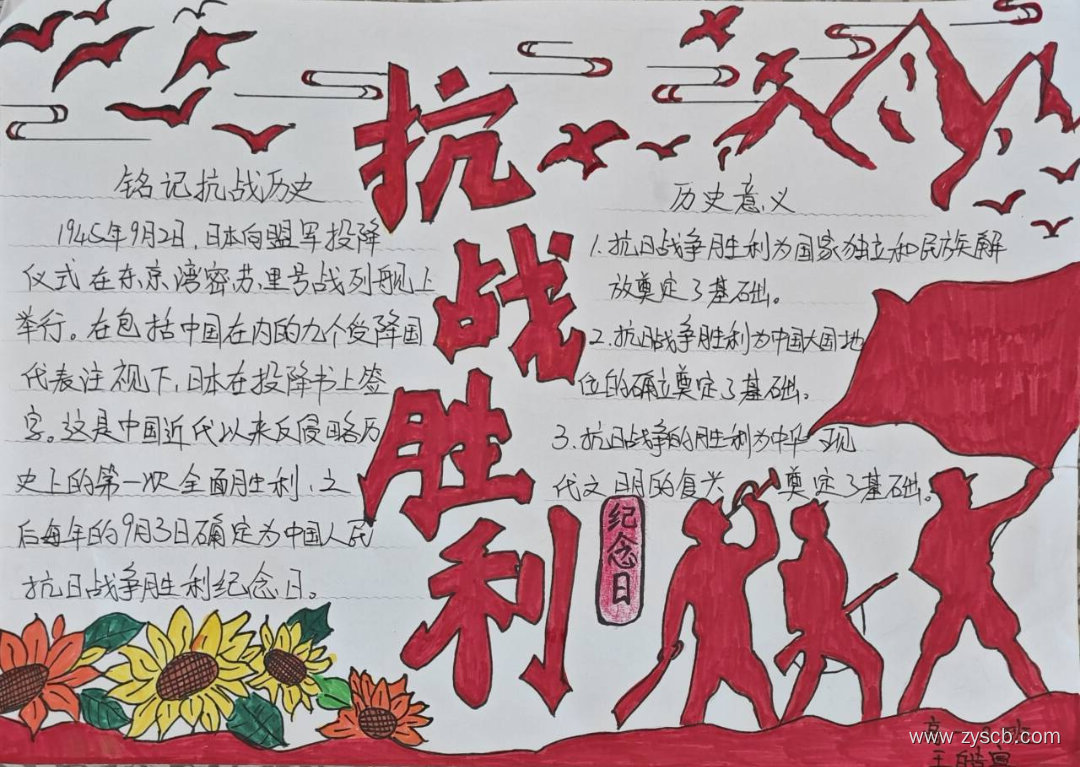 抗战胜利
纪念日
铭记抗战历史
1945年9月2日,日本向盟军投降
仪式在东京湾密苏里号战列舰上
举行。在包括中国在内的九个受降国
代表注视下,日本在投降书上签
字。这是中国近代以来反侵略历
史上的第一次全面胜利,之
后每年的9月3日确定为中国人民
抗日战争胜利纪念日。
历史意义
1.抗日战争胜利为国家独立和民族解
放奠定了基础。
2.抗日战争胜利为中国大国地
位的确立奠定了基础。
3.抗日战争的胜利为中华现
代文明的复兴奠定了基础。
www.zyscb.com